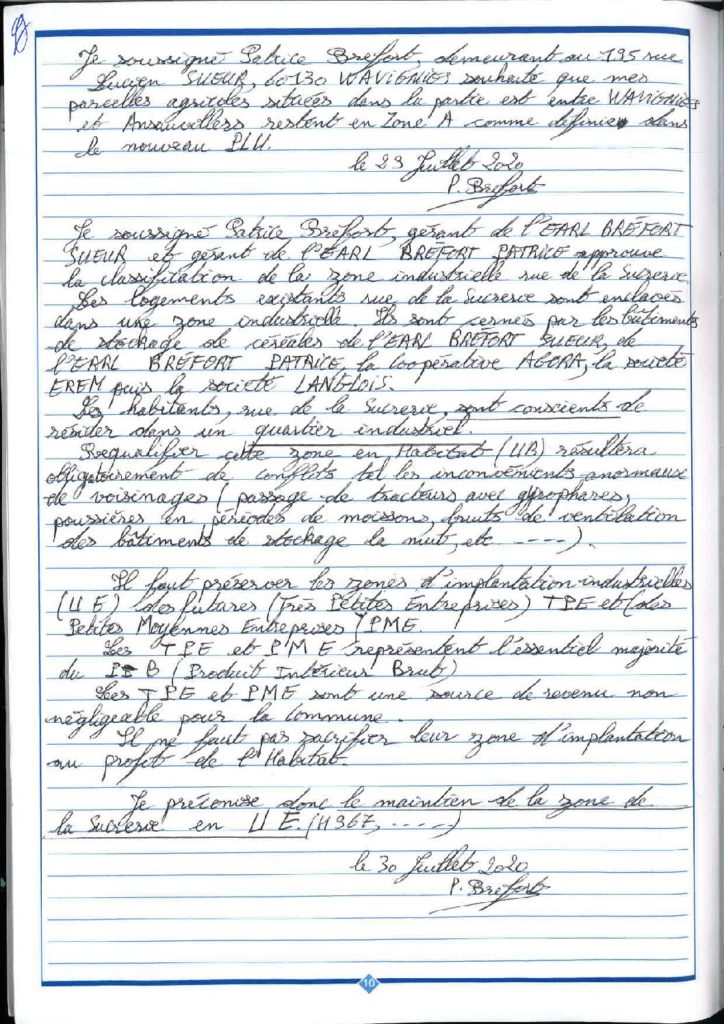 Je soussigné Patrice Brefort, demeurant au 195 rue
Lucien SUEUR, 60130 WAVIGNIES souhaite que mes
parcelles agricoles situées dans la partie est entre WAVIGNIES
et Ansauvillers restent en Zone A comme définie dans
le nouveau PLU.
le 29 Juillet 2020
P. Brefort
Je soussigné Patrice Bréfort, gérant de l'EARL BRÉFORT
SUEUR et gérant de l'EARL BRÉFORT PATRICE approuve
la classification de la zone industrielle rue de la Sucrerie.
Les logements existants rue de la Sucrerie sont enclavés
dans une zone industrielle. Ils sont cernés par les bâtiments
de stockage de céréales de l'EARL BRÉFORT SUEUR, de
l'EARL BRÉFORT PATRICE, la Coopérative AGORA, la société
EREM puis la société LANGLOIS.
Les habitants, rue de la Sucrerie, sont conscients de
résider dans un quartier industriel.
Requalifier cette zone en Habitat (UB) résultera
obligatoirement de conflits tel les inconvénients anormaux
de voisinages (passage de tracteurs avec gyrophares,
poussières en périodes de moissons, bruits de ventilation
des bâtiments de stockage la nuit, etc ----).
Il faut préserver les zones d'implantation industrielles
(UE) des futures (Très Petites Entreprises) TPE et (des
Petites Moyennes Entreprises) PME.
Les TPE et PME représentent l'essentiel majorité
du PIB (Produit Intérieur Brut)
Les TPE et PME sont une source de revenu non
négligeable pour la commune.
Il ne faut pas sacrifier leur zone d'implantation
au profit de l'Habitat.
Je préconise donc le maintien de la zone de
la Sucrerie en UE. (H967, ----)
le 30 Juillet 2020
P. Brefort
10